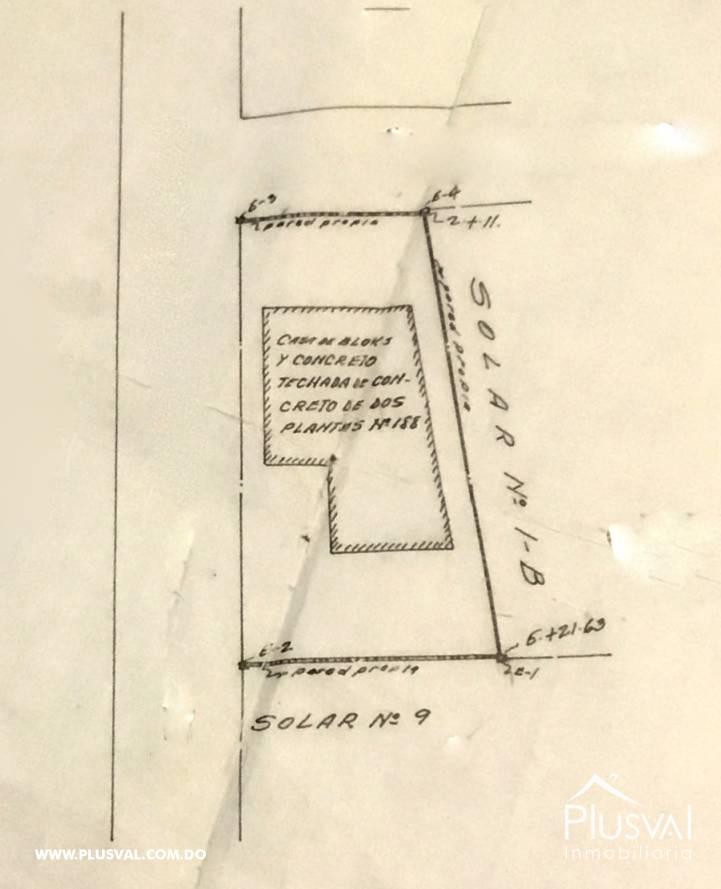 E-3
E-4
pared propia
2 + 11.
pared propia
SOLAR Nº 1-B
CASA DE BLOKS
Y CONCRETO
TECHADA DE CON-
CRETO DE DOS
PLANTAS Nº 188
E-2
6.+21.63
pared propia
E-1
SOLAR Nº 9
PLUSVAL
Inmobiliaria
WWW.PLUSVAL.COM.DO